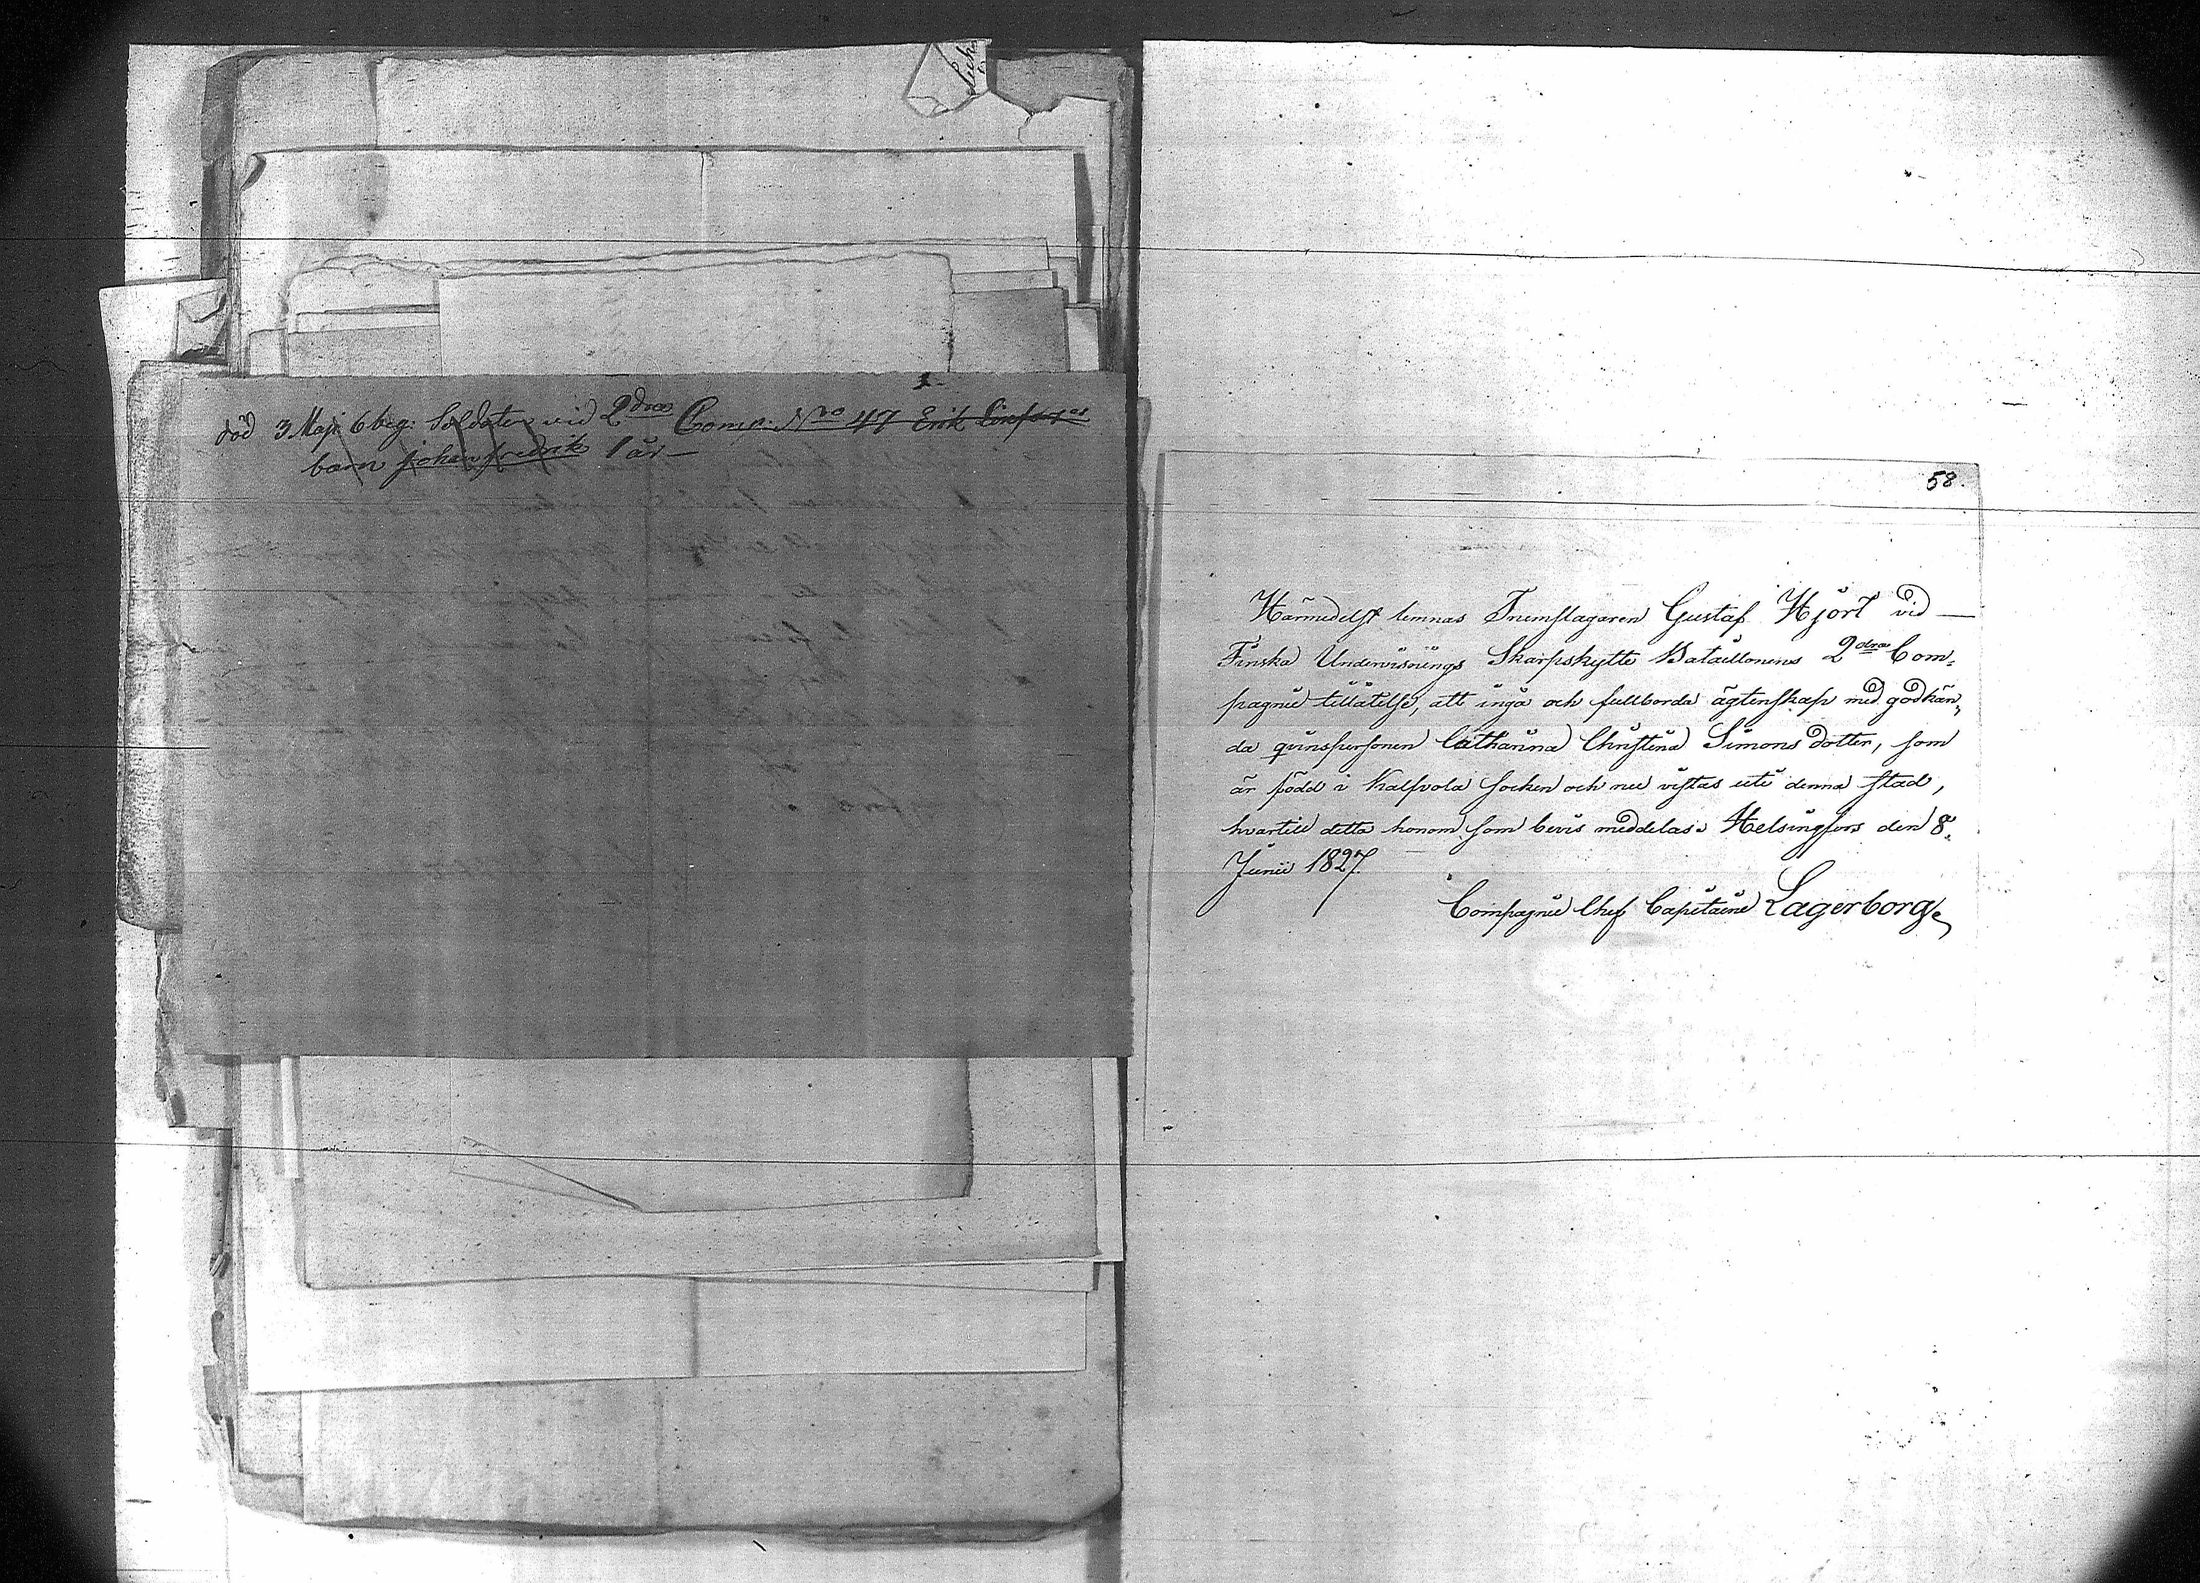 död 3 Maji 6 beg: Soldaten vid 2dra Comp: Nro 47 Erik
barn Johan Fredrik 1 år
58.
Härmedelst lemnas Trumslagaren Gustaf Hjort vid
Finska Undervisnings Skarpskytte Bataillonens 2dra Com-
pagnie tillåtelse, att ingå och fullborda ägtenskap med godkän-
da qvinspersonen Catharina Christina Simons dotter, som
är född i Kalfvola Socken och nu vistas uti denna stad,
hvartill detta honom som bevis meddelas. Helsingfors den 8
Junii 1827.
Compagnie Chef Capitaine Lagerborg